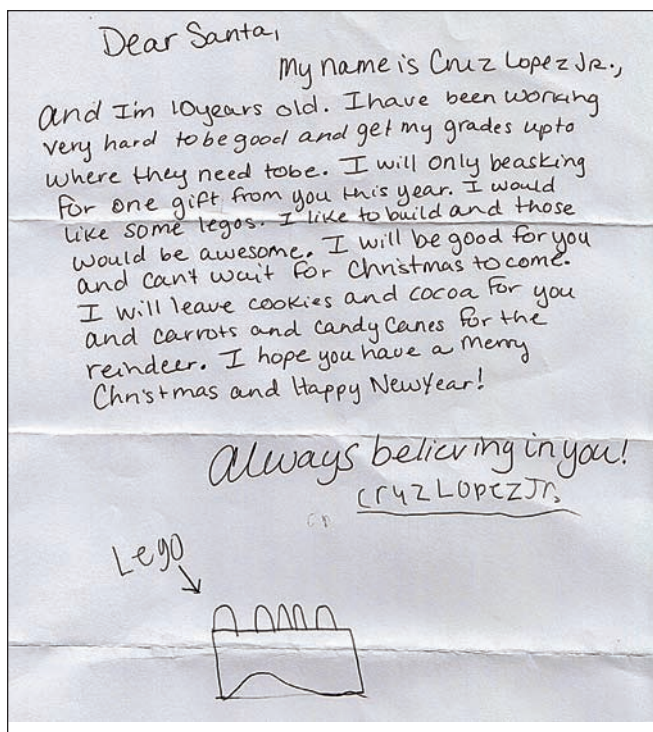 Dear Santa,
My name is Cruz Lopez Jr.,
and I'm 10 years old. I have been working
very hard to be good and get my grades up to
where they need to be. I will only be asking
for one gift from you this year. I would
like some legos. I like to build and those
would be awesome. I will be good for you
and can't wait for Christmas to come.
I will leave cookies and cocoa for you
and carrots and candy canes for the
reindeer. I hope you have a Merry
Christmas and Happy New Year!
Always believing in you!
Cruz Lopez Jr.
Lego